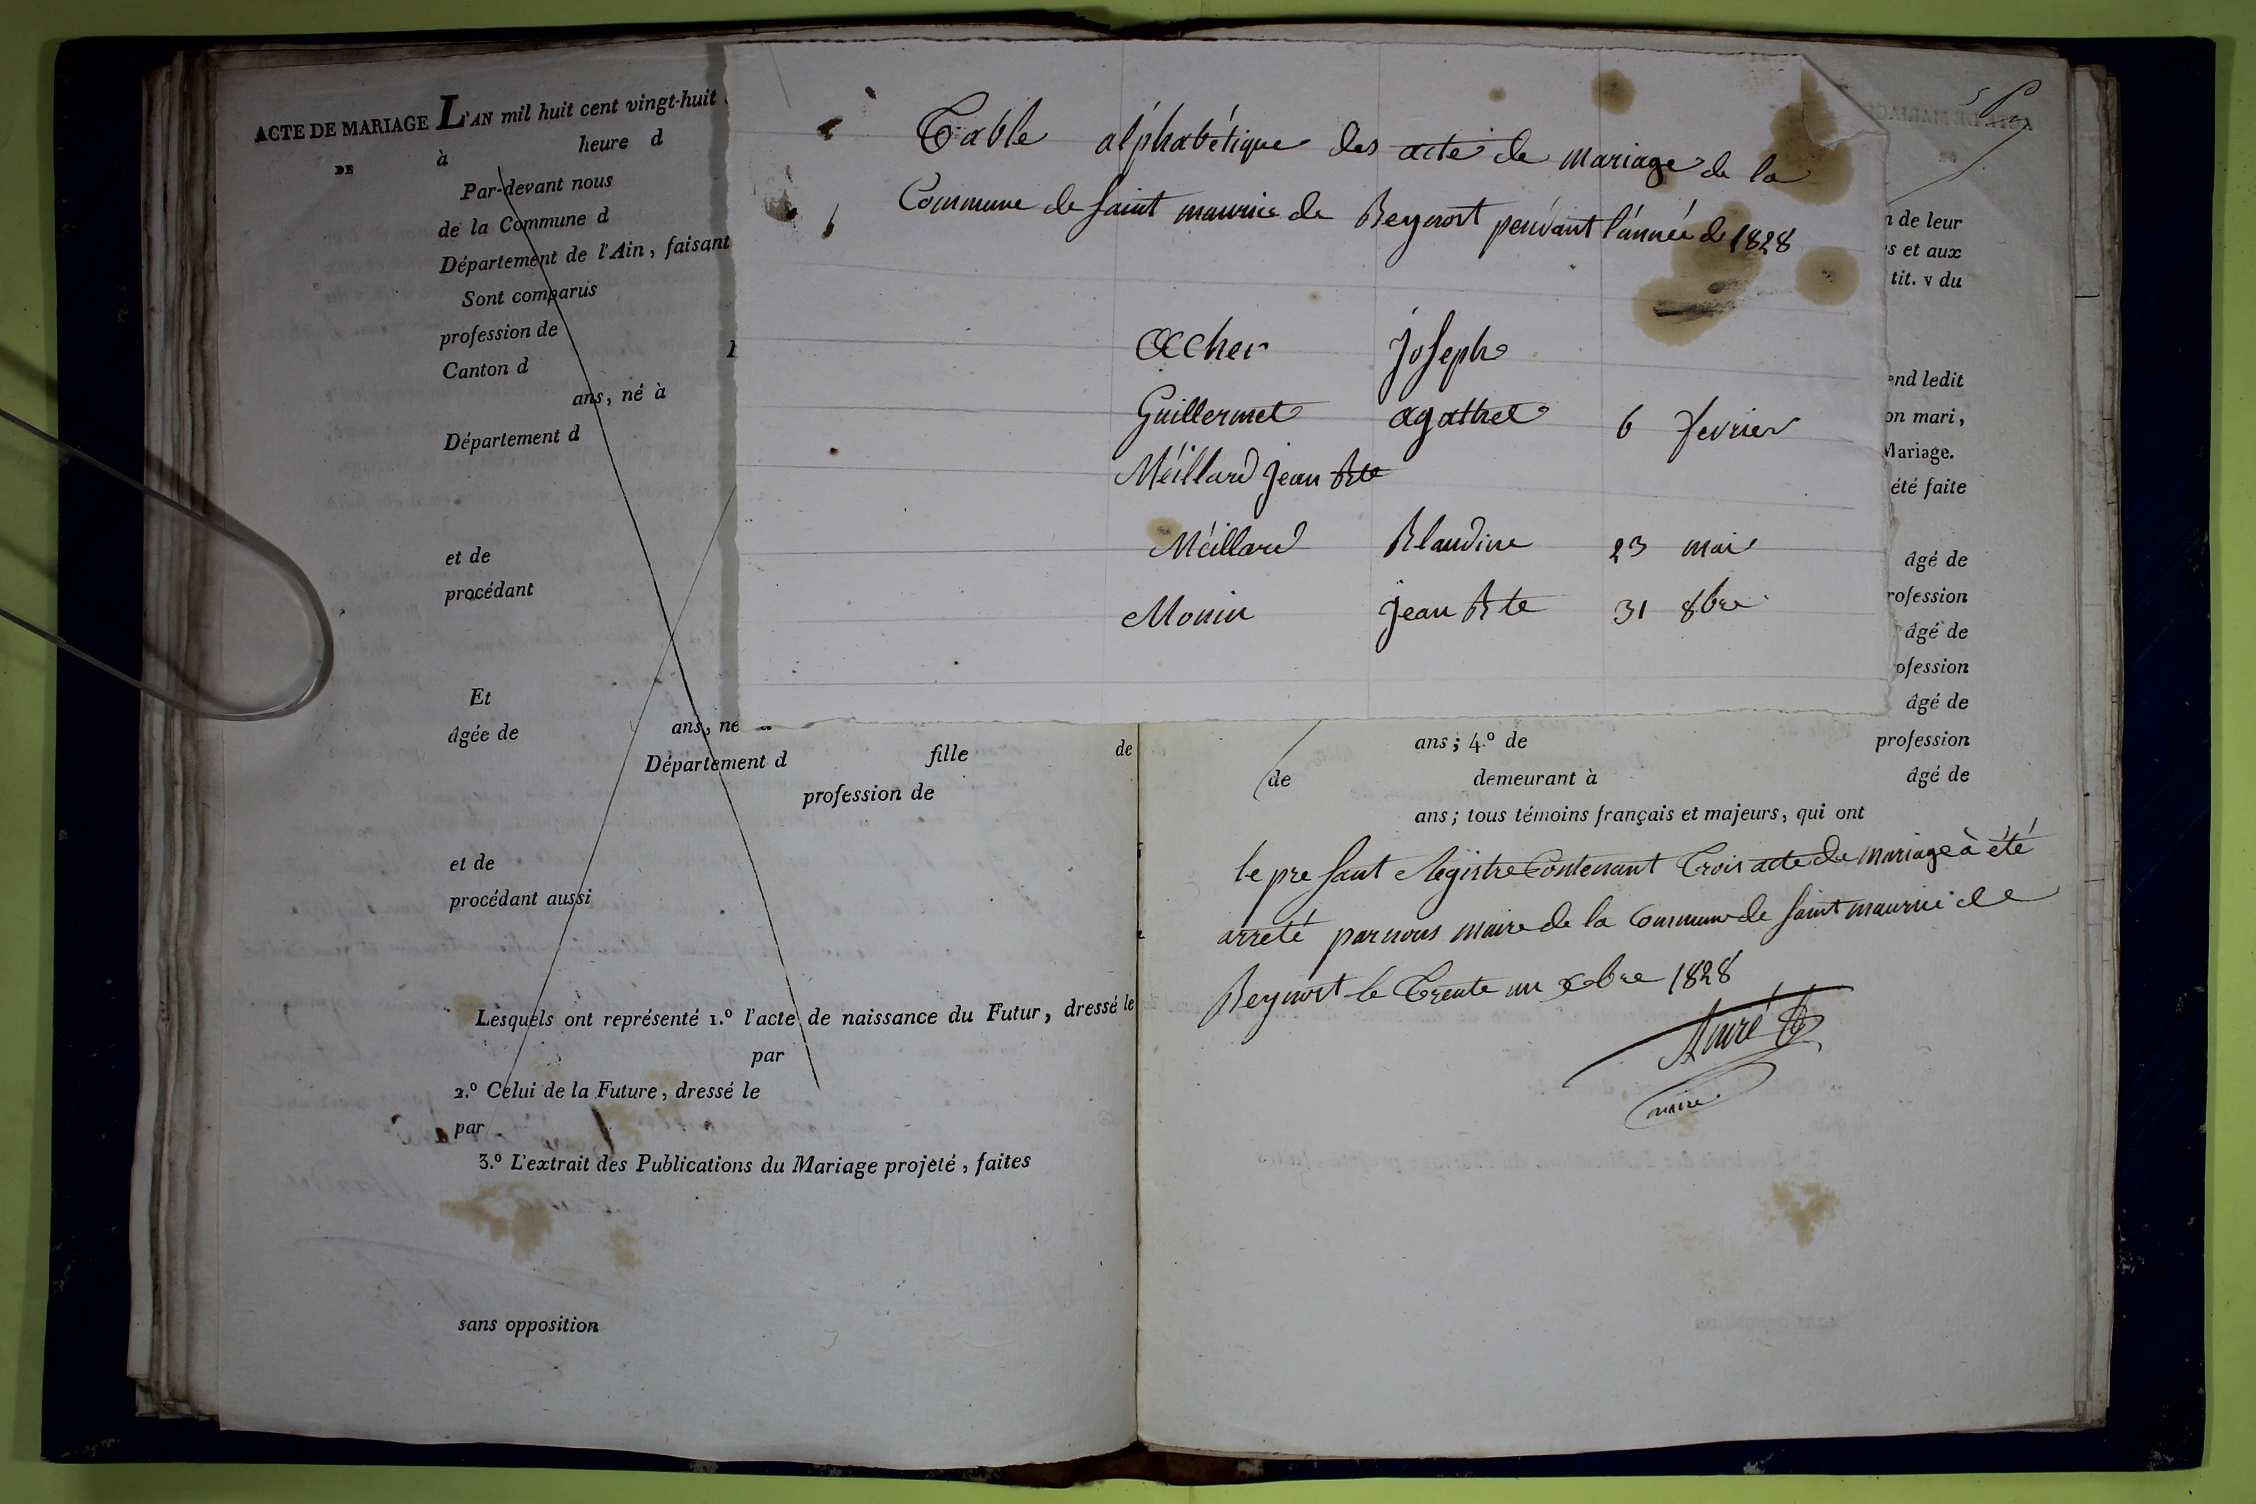 ACTE DE MARIAGE L'AN mil huit cent vingt-huit
DE à heure d
Par-devant nous
de la Commune d
Département de l'Ain, faisant
Sont comparus
profession de
Canton d
ans, né à
Département d
et de
procédant
Et
âgée de ans, né
Département d fille de
profession de
et de
procédant aussi
Lesquels ont représenté 1.º l'acte de naissance du Futur, dressé le
par
2.º Celui de la Future, dressé le
par
3.º L'extrait des Publications du Mariage projeté, faites
sans opposition
Table alphabétique des acte de mariage de la
Commune de saint maurice de Beynost pendant l'année de 1828
accher joseph
Guillermet agathet 6 fevrier
Méillard jean Bte
Méillard Blandine 23 mai
Monin jean Bte 31 8bre
n de leur
s et aux
tit. v du
end ledit
on mari,
Mariage.
été faite
âgé de
rofession
âgé de
ofession
âgé de
ans; 4.º de profession
de demeurant à âgé de
ans; tous témoins français et majeurs, qui ont
le pre sant Régistre Contenant Trois acte de mariage à été
arreté par nous maire de la Commune de saint maurice de
Beynost le Trente un xbre 1828
maire